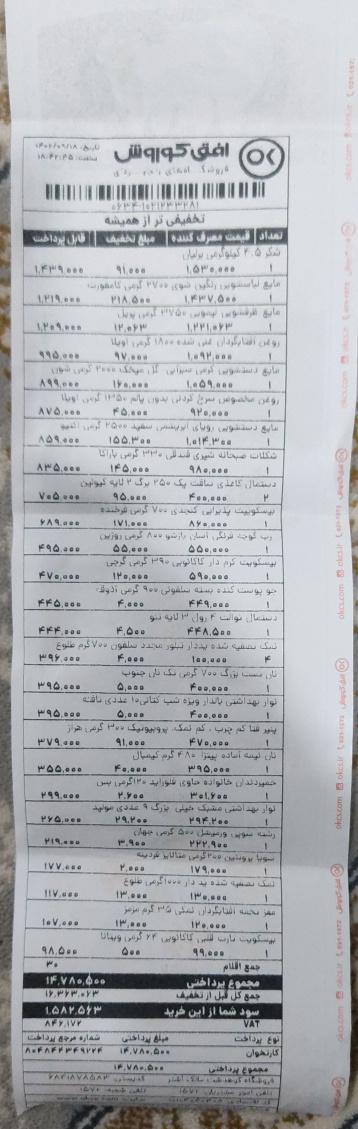 افق کوروش
تاریخ: ۱۴۰۲/۰۹/۱۸
ساعت: ۱۸:۴۲:۴۵
تخفیفی تر از همیشه
تعداد قیمت مصرف کننده مبلغ تخفیف قابل پرداخت
شکر ۴.۵ کیلوگرمی
۱ ۱,۵۳۰,۰۰۰ ۹۱,۰۰۰ ۱,۴۳۹,۰۰۰
مایع لباسشویی رنگین شوی ۲۷۰۰ گرمی
۱ ۱,۴۳۷,۵۰۰ ۲۱۸,۵۰۰ ۱,۲۱۹,۰۰۰
مایع ظرفشویی لیمویی ۳۷۵۰ گرمی پریل
۱ ۱,۲۲۱,۰۶۳ ۱۲,۰۶۳ ۱,۲۰۹,۰۰۰
روغن آفتابگردان غنی شده ۱۸۰۰ گرمی اویلا
۱ ۱,۰۹۲,۰۰۰ ۹۷,۰۰۰ ۹۹۵,۰۰۰
مایع دستشویی کرمی صدفی گل میخک ۲۰۰۰ گرمی
۱ ۱,۰۵۹,۰۰۰ ۱۶۰,۰۰۰ ۸۹۹,۰۰۰
روغن مخصوص سرخ کردنی بدون پالم ۱۳۵۰ گرمی اویلا
۱ ۹۲۰,۰۰۰ ۴۵,۰۰۰ ۸۷۵,۰۰۰
مایع دستشویی رویای ابریشمی سفید ۲۵۰۰ گرمی اکتیو
۱ ۱,۰۱۴,۳۰۰ ۱۵۵,۳۰۰ ۸۵۹,۰۰۰
شکلات صبحانه شیری فندقی ۳۳۰ گرمی باراکا
۱ ۹۸۰,۰۰۰ ۱۴۵,۰۰۰ ۸۳۵,۰۰۰
دستمال کاغذی سافت پک ۲۵۰ برگ ۲ لایه
۲ ۴۰۰,۰۰۰ ۹۵,۰۰۰ ۷۰۵,۰۰۰
بیسکوییت پذیرایی کنجدی ۷۰۰ گرمی فرخنده
۱ ۸۶۰,۰۰۰ ۱۷۱,۰۰۰ ۶۸۹,۰۰۰
رب گوجه فرنگی آسان بازشو ۸۰۰ گرمی روژین
۱ ۵۵۰,۰۰۰ ۵۵,۰۰۰ ۴۹۵,۰۰۰
بیسکویت کرم دار کاکائویی ۳۹۰ گرمی گرجی
۱ ۵۹۰,۰۰۰ ۱۲۰,۰۰۰ ۴۷۰,۰۰۰
جو پوست کنده بسته سلفونی ۹۰۰ گرمی
۱ ۴۴۹,۰۰۰ ۴,۰۰۰ ۴۴۵,۰۰۰
دستمال توالت ۴ رول ۳ لایه تنو
۱ ۴۴۸,۵۰۰ ۴,۵۰۰ ۴۴۴,۰۰۰
نمک تصفیه شده یددار تبلور مجدد سلفون ۷۰۰ گرم طلوع
۴ ۱۰۰,۰۰۰ ۴,۰۰۰ ۳۹۶,۰۰۰
نان تست بزرگ ۷۰۰ گرمی تک نان جنوب
۱ ۴۰۰,۰۰۰ ۵,۰۰۰ ۳۹۵,۰۰۰
نوار بهداشتی بالدار ویژه شب کتانی ۱۰ عددی نافته
۱ ۴۰۰,۰۰۰ ۵,۰۰۰ ۳۹۵,۰۰۰
پنیر فتا کم چرب ، کم نمک، پروبیوتیک ۳۰۰ گرمی هراز
۱ ۴۷۰,۰۰۰ ۹۱,۰۰۰ ۳۷۹,۰۰۰
نان نیمه آماده پیتزا ۴۸۰ گرم
۱ ۳۹۵,۰۰۰ ۴۰,۰۰۰ ۳۵۵,۰۰۰
خمیردندان خانواده حاوی فلوراید ۱۲۰ گرمی بس
۱ ۳۰۱,۶۰۰ ۲,۶۰۰ ۲۹۹,۰۰۰
نوار بهداشتی مشبک خیلی بزرگ ۹ عددی مولپد
۱ ۲۹۴,۲۰۰ ۲۹,۲۰۰ ۲۶۵,۰۰۰
رشته سوپی ورمیشل ۵۰۰ گرمی جهان
۱ ۲۲۲,۹۰۰ ۳,۹۰۰ ۲۱۹,۰۰۰
سویا پروتئین ۲۰۰ گرمی
۱ ۱۷۹,۰۰۰ ۲,۰۰۰ ۱۷۷,۰۰۰
نمک تصفیه شده ید دار ۱۰۰۰ گرمی طلوع
۱ ۱۳۰,۰۰۰ ۱۳,۰۰۰ ۱۱۷,۰۰۰
مغز تخمه آفتابگردان نمکی ۳۵ گرم مزمز
۱ ۱۲۰,۰۰۰ ۱۳,۰۰۰ ۱۰۷,۰۰۰
بیسکویت تارت قلبی کاکائویی ۶۴ گرمی ویتانا
۱ ۹۹,۰۰۰ ۵۰۰ ۹۸,۵۰۰
جمع اقلام ۳۰
مجموع پرداختی ۱۴,۷۸۰,۵۰۰
جمع کل قبل از تخفیف ۱۶,۳۶۳,۰۶۳
سود شما از این خرید ۱,۵۸۲,۵۶۳
VAT ۸۴۶,۱۷۲
نوع پرداخت مبلغ پرداختی شماره مرجع پرداخت
کارتخوان ۱۴,۷۸۰,۵۰۰ ۸۰۴۸۴۴۳۴۹۲۲۴
مجموع پرداختی ۱۴,۷۸۰,۵۰۰